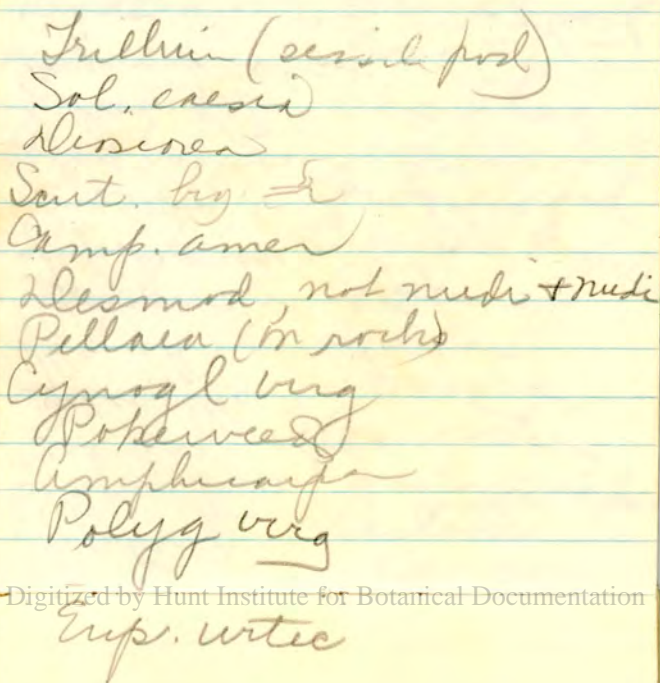 Trillium (sessile pod)
Sol. caesia
Dioscorea
Scut. big
Camp. amer
Desmod, not nudi + nudi
Pellaea (on rocks)
Cynogl virg
Pokeweed
Amphicarpa
Polyg virg
Digitized by Hunt Institute for Botanical Documentation
Eup. urtic